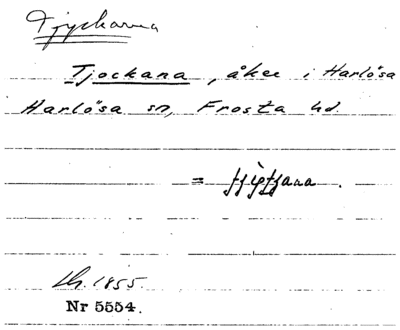 Tjyckarna
Tjockana, åker i Harlösa
Harlösa sn, Frosta hd.
=
Lh. 1855.
Nr 5554.